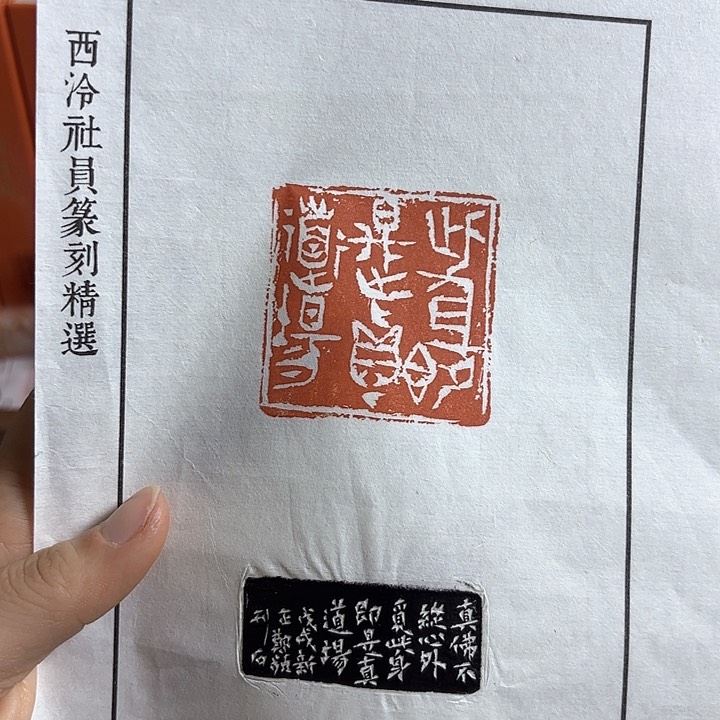 西泠社員篆刻精選
此身即
是真
道場
真佛不
從心外
覓此身
即是真
道場
戊戌
正